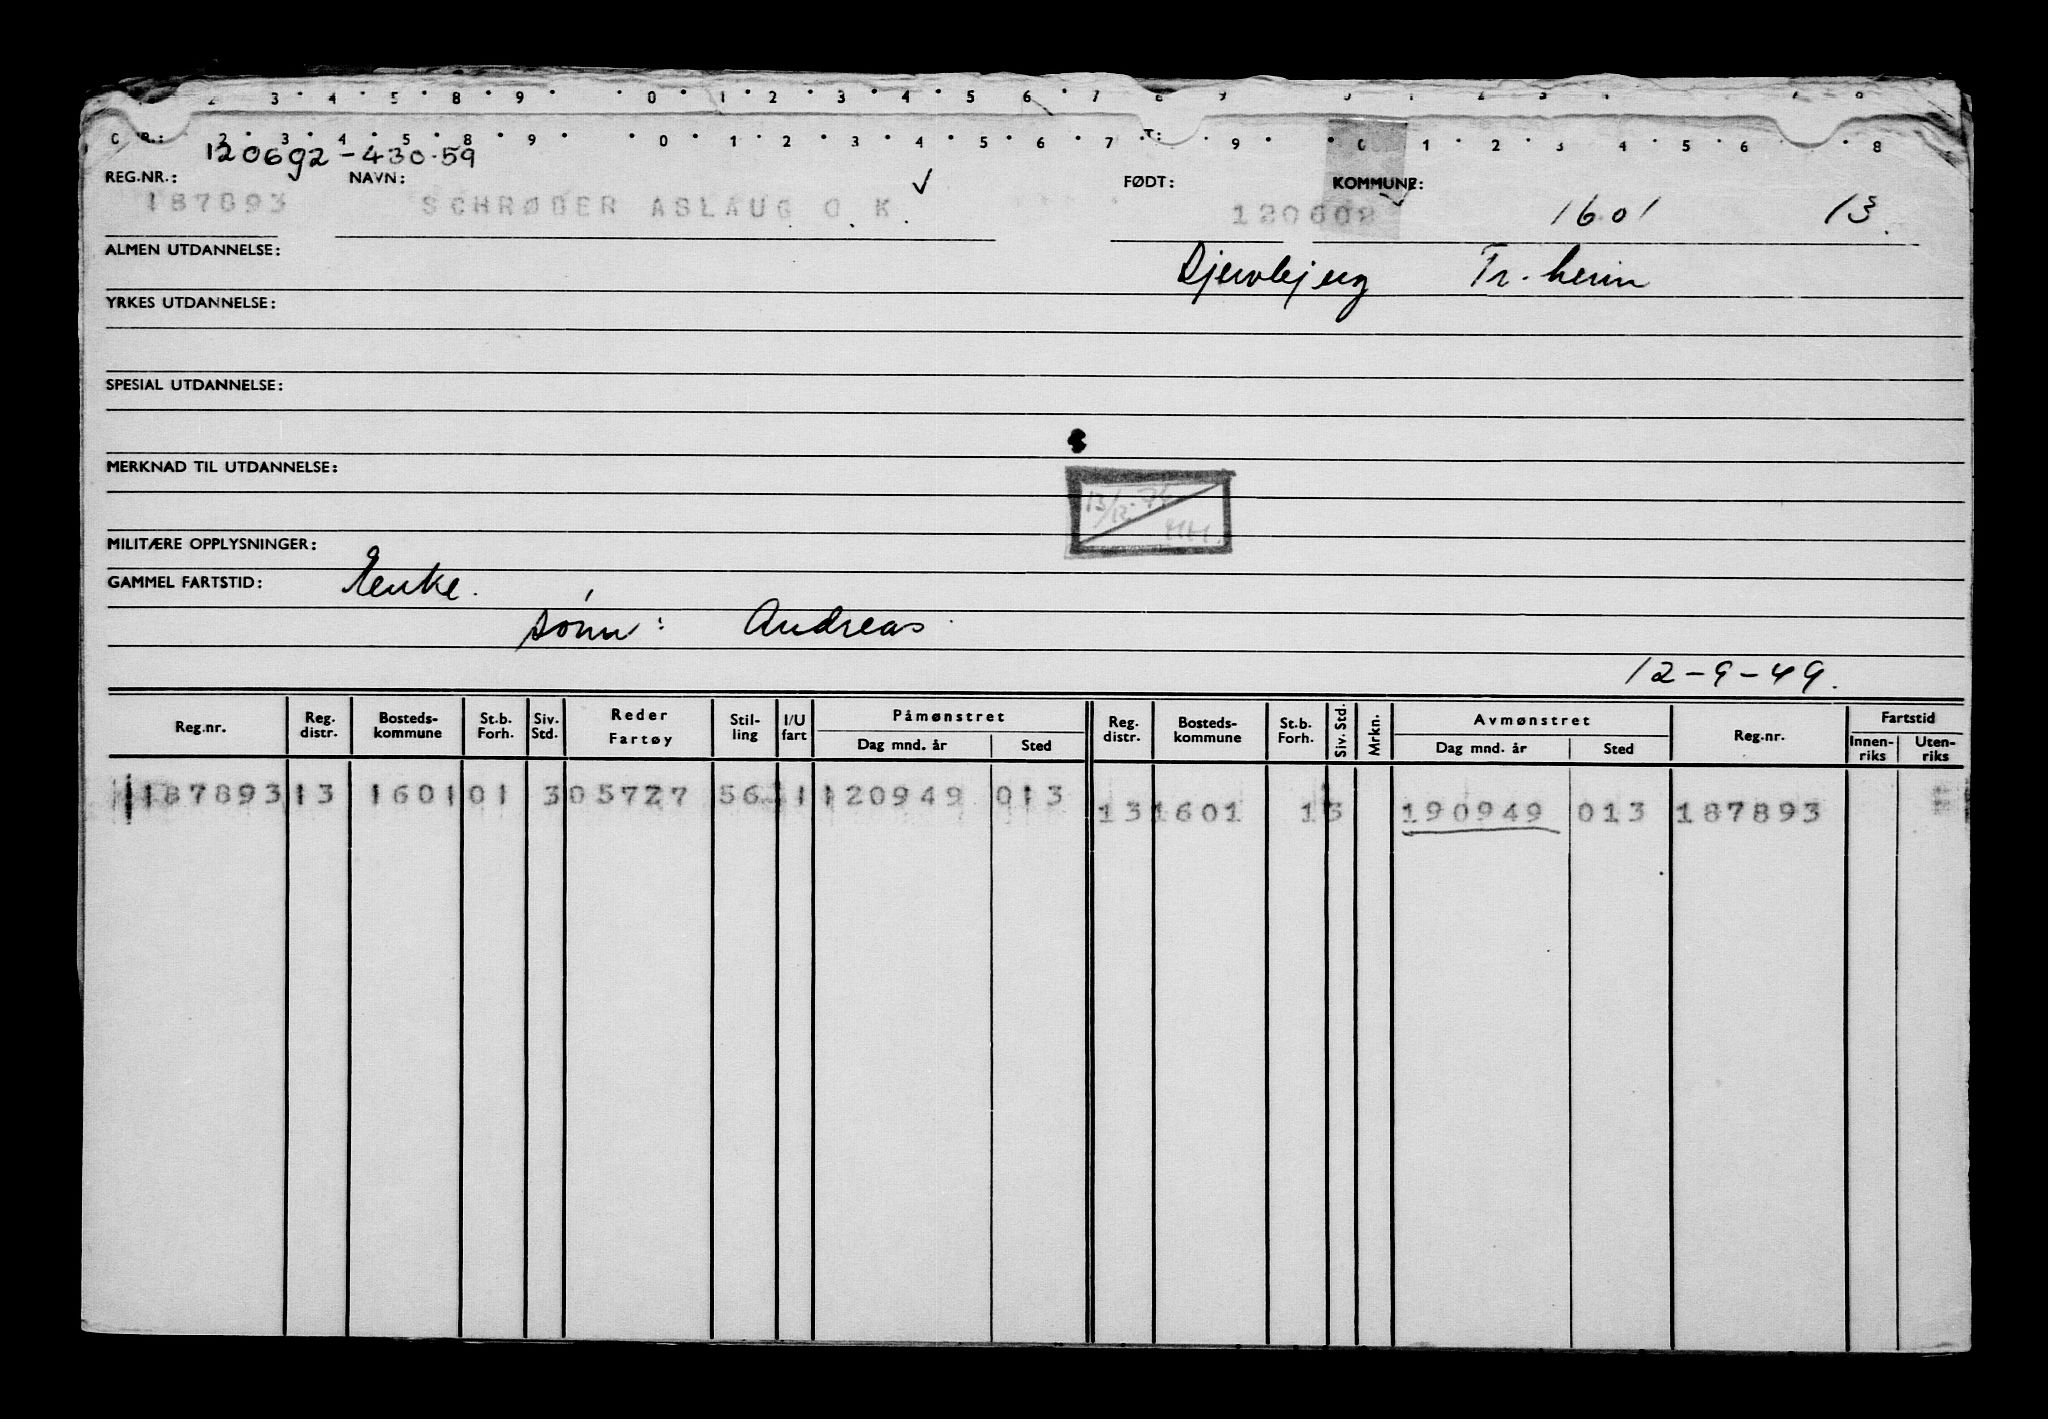 3 4 5 8 9 0 1 2 3 4 5 6 7 8 9
2 3 4 5 8 9 0 1 2 3 4 5 6 7 9 0 1 2 3 4 5 6 8
120692-430.59
REG.NR.: NAVN: FØDT: KOMMUNE:
187893 SCHRØDER ASLAUG O K 1601 13
ALMEN UTDANNELSE: Tr. heim
YRKES UTDANNELSE:
SPESIAL UTDANNELSE:
MERKNAD TIL UTDANNELSE:
13/12-74
HH.
MILITÆRE OPPLYSNINGER:
GAMMEL FARTSTID: Enke.
sønn: Andreas
12-9-49.
Reg.nr. Reg. distr. Bosteds- kommune St.b. Forh. Siv. Std. Reder Fartøy Stil- ling I/U fart Påmønstret Dag mnd. år Sted Reg. distr. Bosteds- kommune St.b. Forh. Siv. Std. Mrkn. Avmønstret Dag mnd. år Sted Reg.nr. Fartstid Innen- riks Uten- riks
187893 13 1601 01 3 05727 56 1 120949 013 13 1601 1 3 190949 013 187893